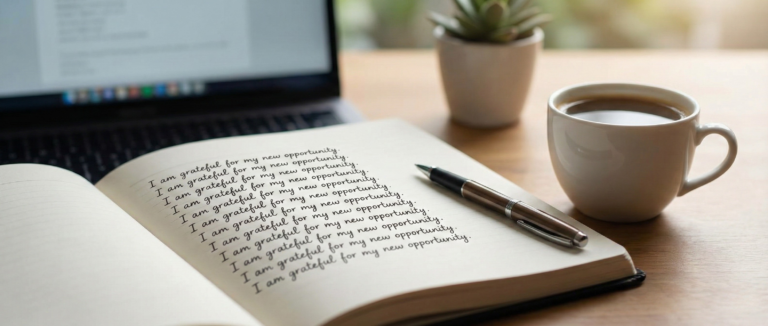 I am grateful for my new opportunity.
I am grateful for my new opportunity.
I am grateful for my new opportunity.
I am grateful for my new opportunity.
I am grateful for my new opportunity.
I am grateful for my new opportunity.
I am grateful for my new opportunity.
I am grateful for my new opportunity.
I am grateful for my new opportunity.
I am grateful for my new opportunity.
I am grateful for my new opportunity.
I am grateful for my new opportunity.